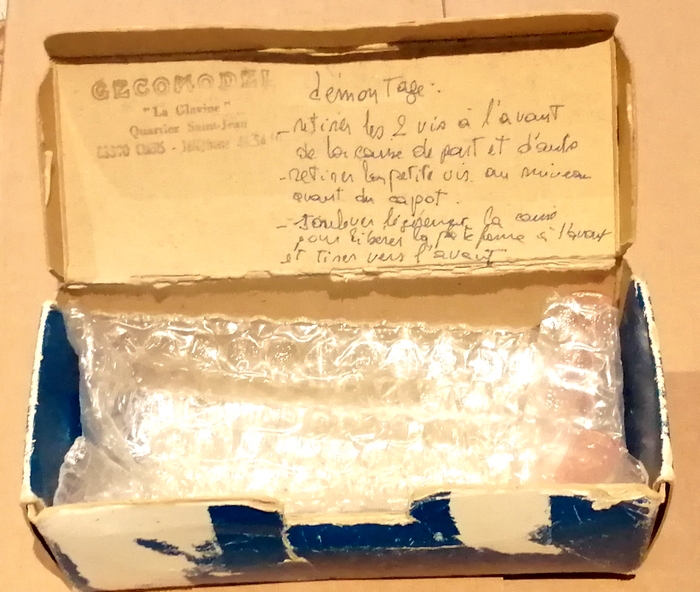 GECOMODEL
"La Glavine"
Quartier Saint-Jean
- Téléphone
démontage :
- retirer les 2 vis à l'avant
de la caisse de part et d'autre
- retirer la petite vis au niveau
avant du capot.
- soulever légèrement la caisse
pour libérer la plate forme à l'avant
et tirer vers l'avant